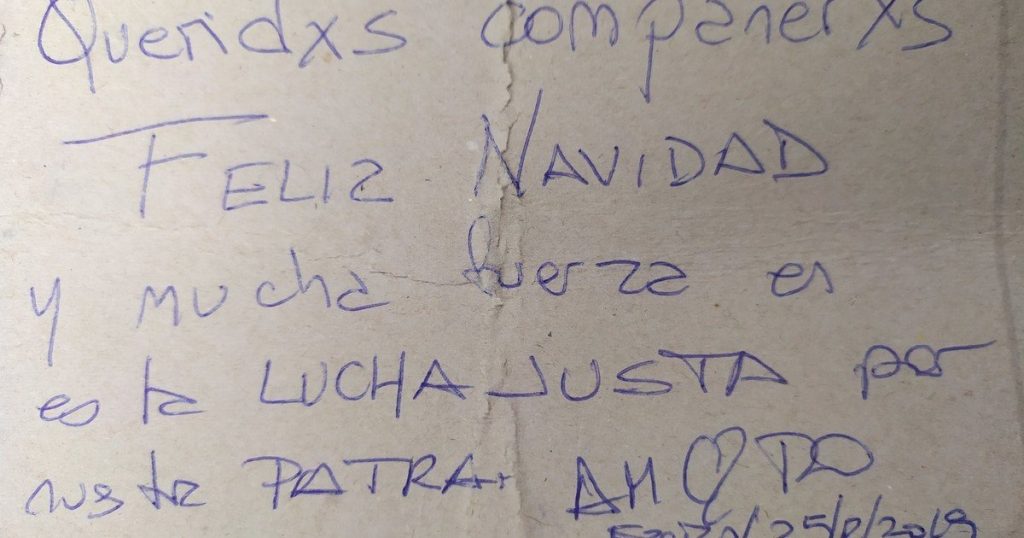 Queridxs compañerxs
FELIZ NAVIDAD
y mucha fuerza en
esta LUCHA JUSTA por
PATRA.
25/12/2019